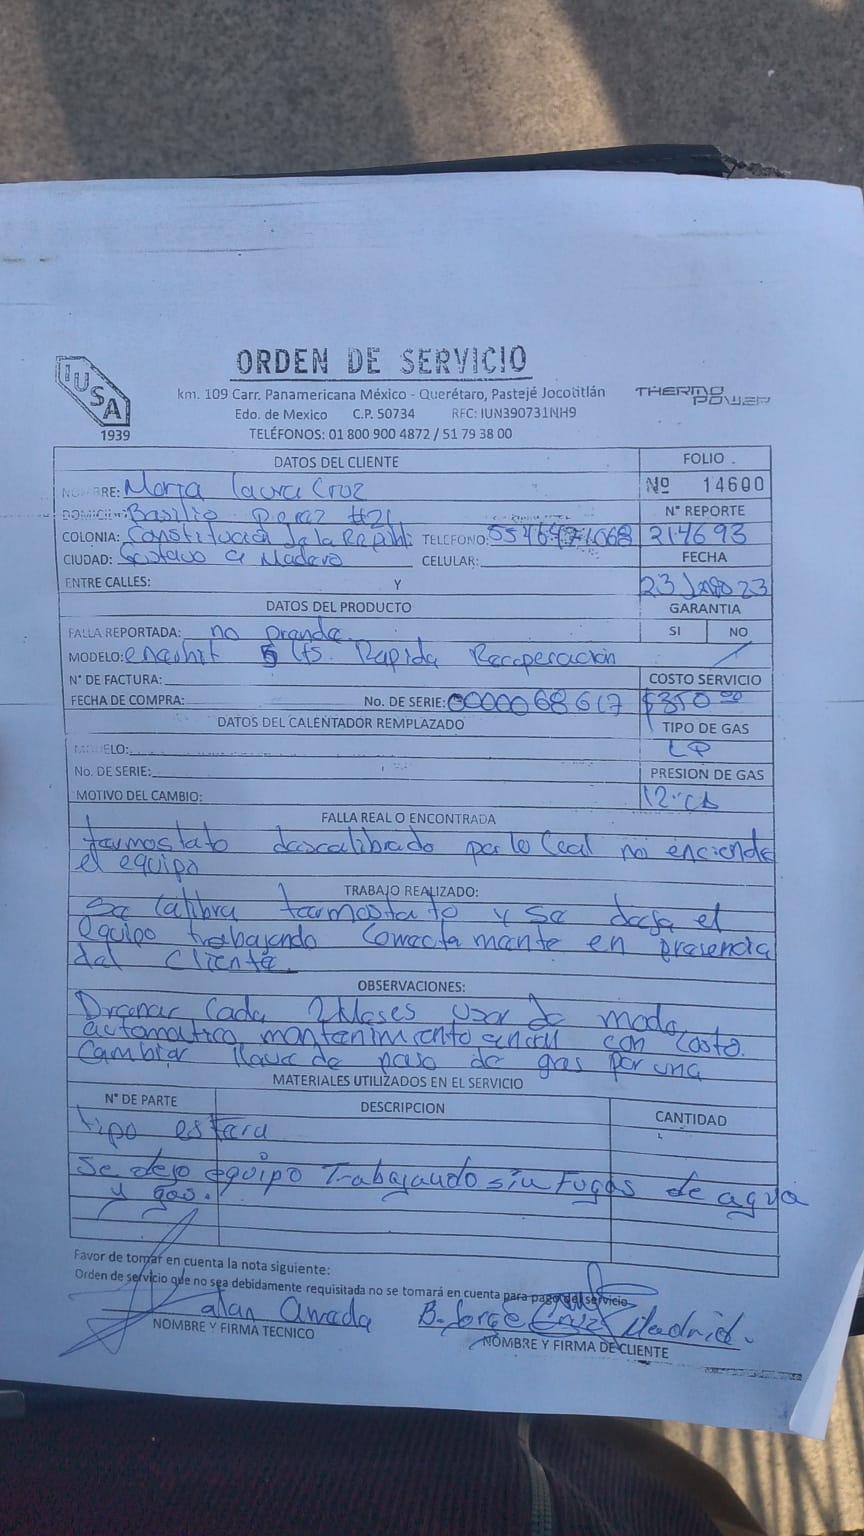 ORDEN DE SERVICIO
IUSA
1939
km. 109 Carr. Panamericana México - Querétaro, Pastejé Jocotitlán
Edo. de Mexico C.P. 50734 RFC: IUN390731NH9
TELÉFONOS: 01 800 900 4872 / 51 79 38 00
THERMO POWER
DATOS DEL CLIENTE FOLIO
NOMBRE: Maria laura Cruz Nº 14600
DOMICILIO: Basilio Perez #21 N° REPORTE
COLONIA: Constitución de la Republi TELEFONO: 214693
CIUDAD: Gostavo a Madero CELULAR: FECHA
ENTRE CALLES: Y 23 23
DATOS DEL PRODUCTO GARANTIA
FALLA REPORTADA: no prende. SI NO
MODELO: 5 lts. Rapida Recuperación
N° DE FACTURA: COSTO SERVICIO
FECHA DE COMPRA: No. DE SERIE: 0000068617 $350.00
DATOS DEL CALENTADOR REMPLAZADO TIPO DE GAS
MODELO: LP
No. DE SERIE: PRESION DE GAS
MOTIVO DEL CAMBIO:
FALLA REAL O ENCONTRADA
tarmostato dascalibrado por lo Cual no enciende
el equipo
TRABAJO REALIZADO:
Se Calibra tarmostato y se daja el
equipo trabajando Correctamante en presencia
del Cliente.
OBSERVACIONES:
Drenar Cada 2 Meses usar de modo
automatico mantenimiento anual con Costo.
Cambiar llave de paso de gas por una
MATERIALES UTILIZADOS EN EL SERVICIO
N° DE PARTE DESCRIPCION CANTIDAD
tipo esfera
Se dejo equipo Trabajando sin Fugas de agua
y gas.
Favor de tomar en cuenta la nota siguiente:
Orden de servicio que no sea debidamente requisitada no se tomará en cuenta para pago del servicio
alan B. Jorge Cruz Madrid.
NOMBRE Y FIRMA TECNICO NOMBRE Y FIRMA DE CLIENTE